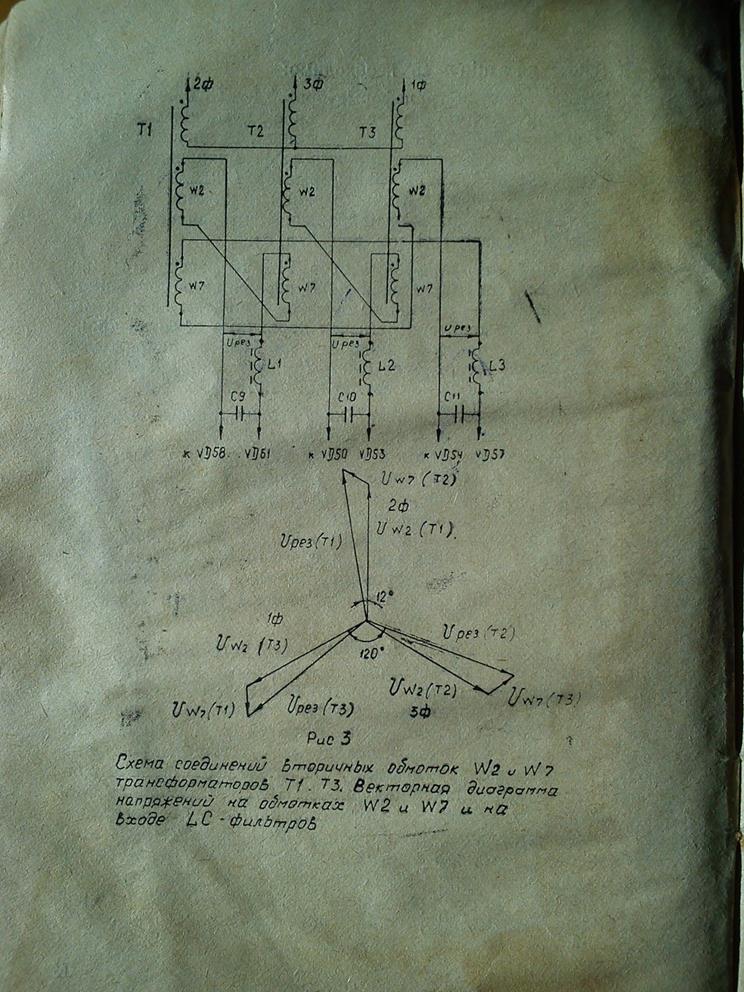 2ф 3ф 1ф
T1 T2 T3
W2 W2 W2
W7 W7 W7
Uрез Uрез Uрез
L1 L2 L3
C9 C10 C11
к VD58 . . VD61 к VD50 VD53 к VD54 VD57
Uw7 (T2)
2ф
Uw2 (T1)
Uрез(T1)
12°
1ф
Uрез(T2)
Uw2 (T3)
120°
Uw2(T2)
Uw7(T3)
Uw7(T1)
Uрез(T3)
3ф
Рис 3
Схема соединений вторичных обмоток W2 и W7
трансформаторов T1. T3. Векторная диаграмма
напряжений на обмотках W2 и W7 и на
входе LC-фильтров